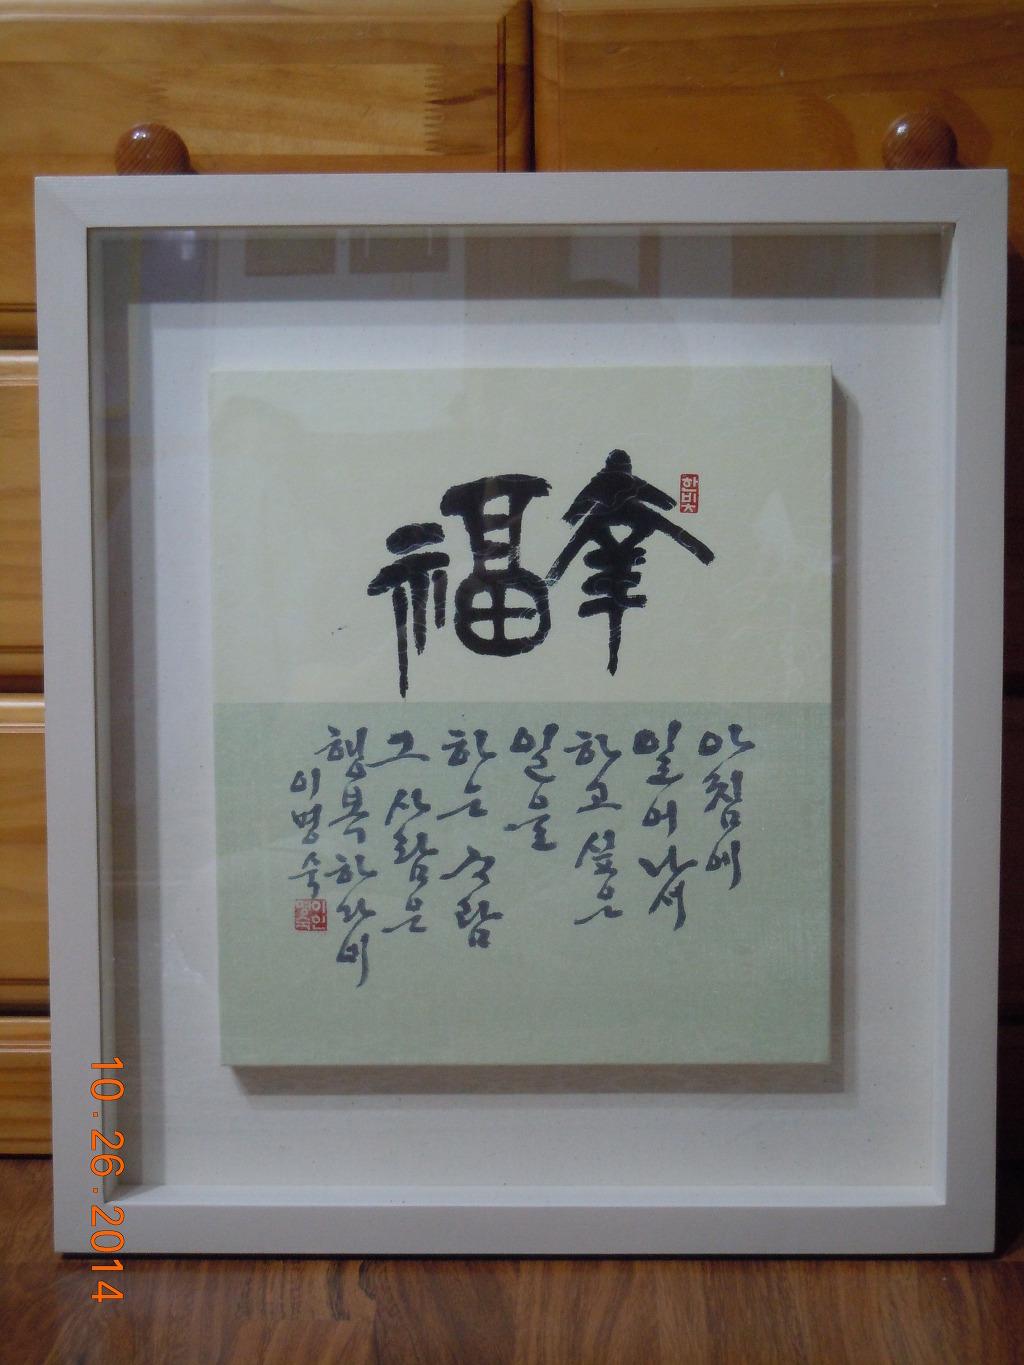 幸福
한빛
아침에
일어나서
하고 싶은
일을
하는 사람
그 사람은
이명숙
이인
명숙
10.26.2014